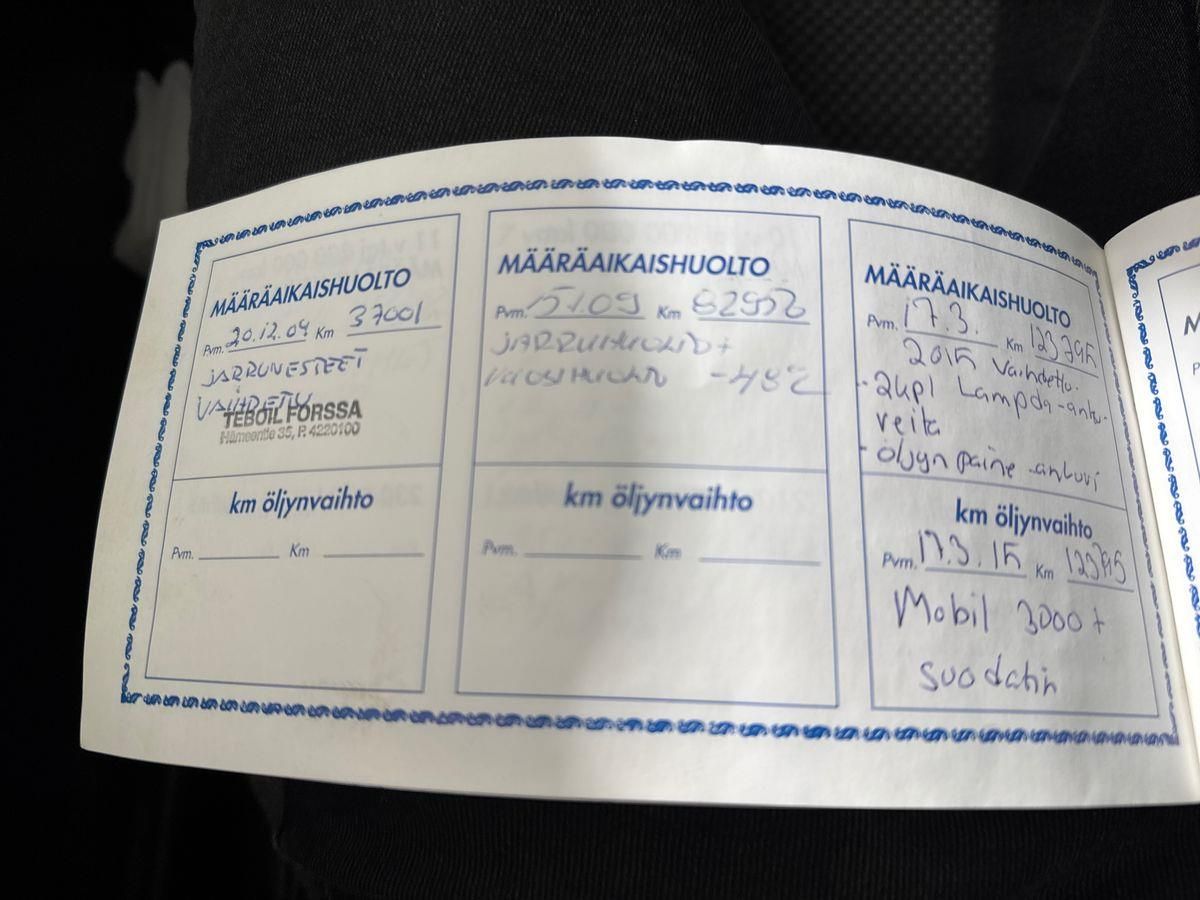 MÄÄRÄAIKAISHUOLTO
Pvm. 20.12.04 Km 37001
JARRUNESTEET
VAIHDETTU
TEBOIL FORSSA
Hämeentie 35, P. 4220100
km öljynvaihto
Pvm. Km
MÄÄRÄAIKAISHUOLTO
Pvm. Km
JARRUHUOLTO +
VUOSIHUOLTO -48°C
km öljynvaihto
Pvm. Km
MÄÄRÄAIKAISHUOLTO
Pvm. 17.3. Km 123795
2015 Vaihdettu
- 2kpl Lampda-antu-
reita
- öljyn paine -anturi
km öljynvaihto
Pvm. 17.3.15 Km 123795
Mobil 3000 +
suodatin